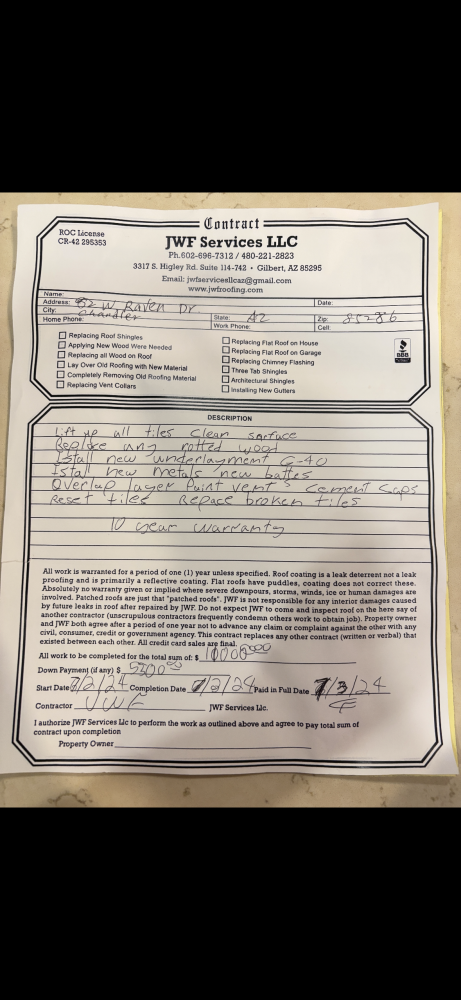 Contract
ROC License
CR-42 295353
JWF Services LLC
Ph.602-696-7312 / 480-221-2823
3317 S. Higley Rd. Suite 114-742 • Gilbert, AZ 85295
Email: jwfservicesllcaz@gmail.com
www.jwfroofing.com
Name:
Address: 82 W. Raven Dr. Date:
City: Chandler State: AZ Zip: 85286
Home Phone: Work Phone: Cell:
Replacing Roof Shingles
Applying New Wood Were Needed
Replacing all Wood on Roof
Lay Over Old Roofing with New Material
Completely Removing Old Roofing Material
Replacing Vent Collars
Replacing Flat Roof on House
Replacing Flat Roof on Garage
Replacing Chimney Flashing
Three Tab Shingles
Architectural Shingles
Installing New Gutters
BBB
DESCRIPTION
Lift up all tiles clean sorface
Replace any rotted wood
Istall new underlayment G-40
Istall new metals new battes
Overlap layer Paint vent's cement caps
Reset tiles Repace broken tiles
10 year warranty
All work is warranted for a period of one (1) year unless specified. Roof coating is a leak deterrent not a leak
proofing and is primarily a reflective coating. Flat roofs have puddles, coating does not correct these.
Absolutely no warranty given or implied where severe downpours, storms, winds, ice or human damages are
involved. Patched roofs are just that "patched roofs". JWF is not responsible for any interior damages caused
by future leaks in roof after repaired by JWF. Do not expect JWF to come and inspect roof on the here say of
another contractor (unscrupulous contractors frequently condemn others work to obtain job). Property owner
and JWF both agree after a period of one year not to advance any claim or complaint against the other with any
civil, consumer, credit or government agency. This contract replaces any other contract (written or verbal) that
existed between each other. All credit card sales are final.
All work to be completed for the total sum of: $
Down Payment (if any) $
Start Date 7/2/24 Completion Date 7/2/24 Paid in Full Date 7/3/24
Contractor JWF JWF Services Llc.
I authorize JWF Services Llc to perform the work as outlined above and agree to pay total sum of
contract upon completion
Property Owner